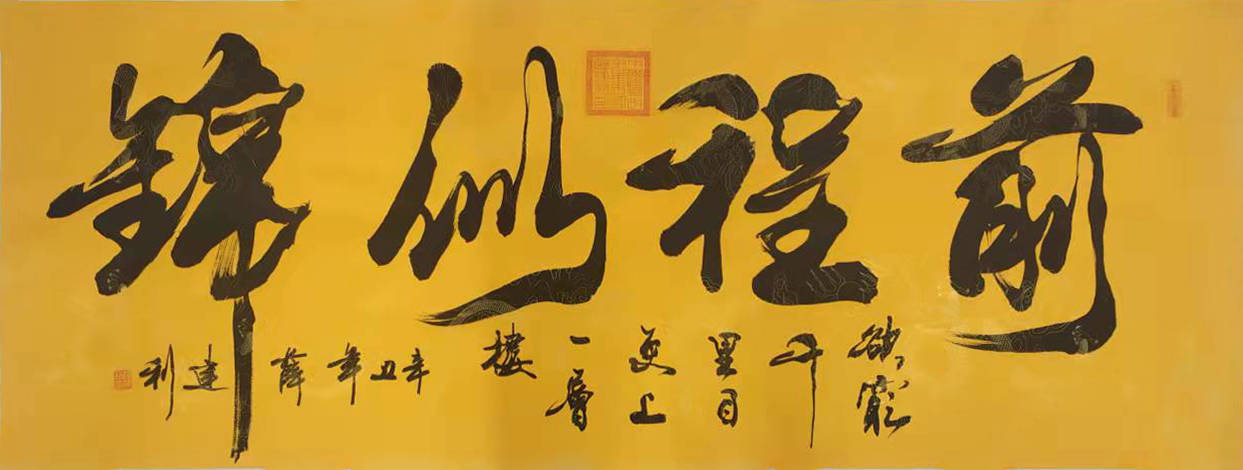 前程似锦
欲穷
千
里目
更上
一層
楼
辛丑年薛建利